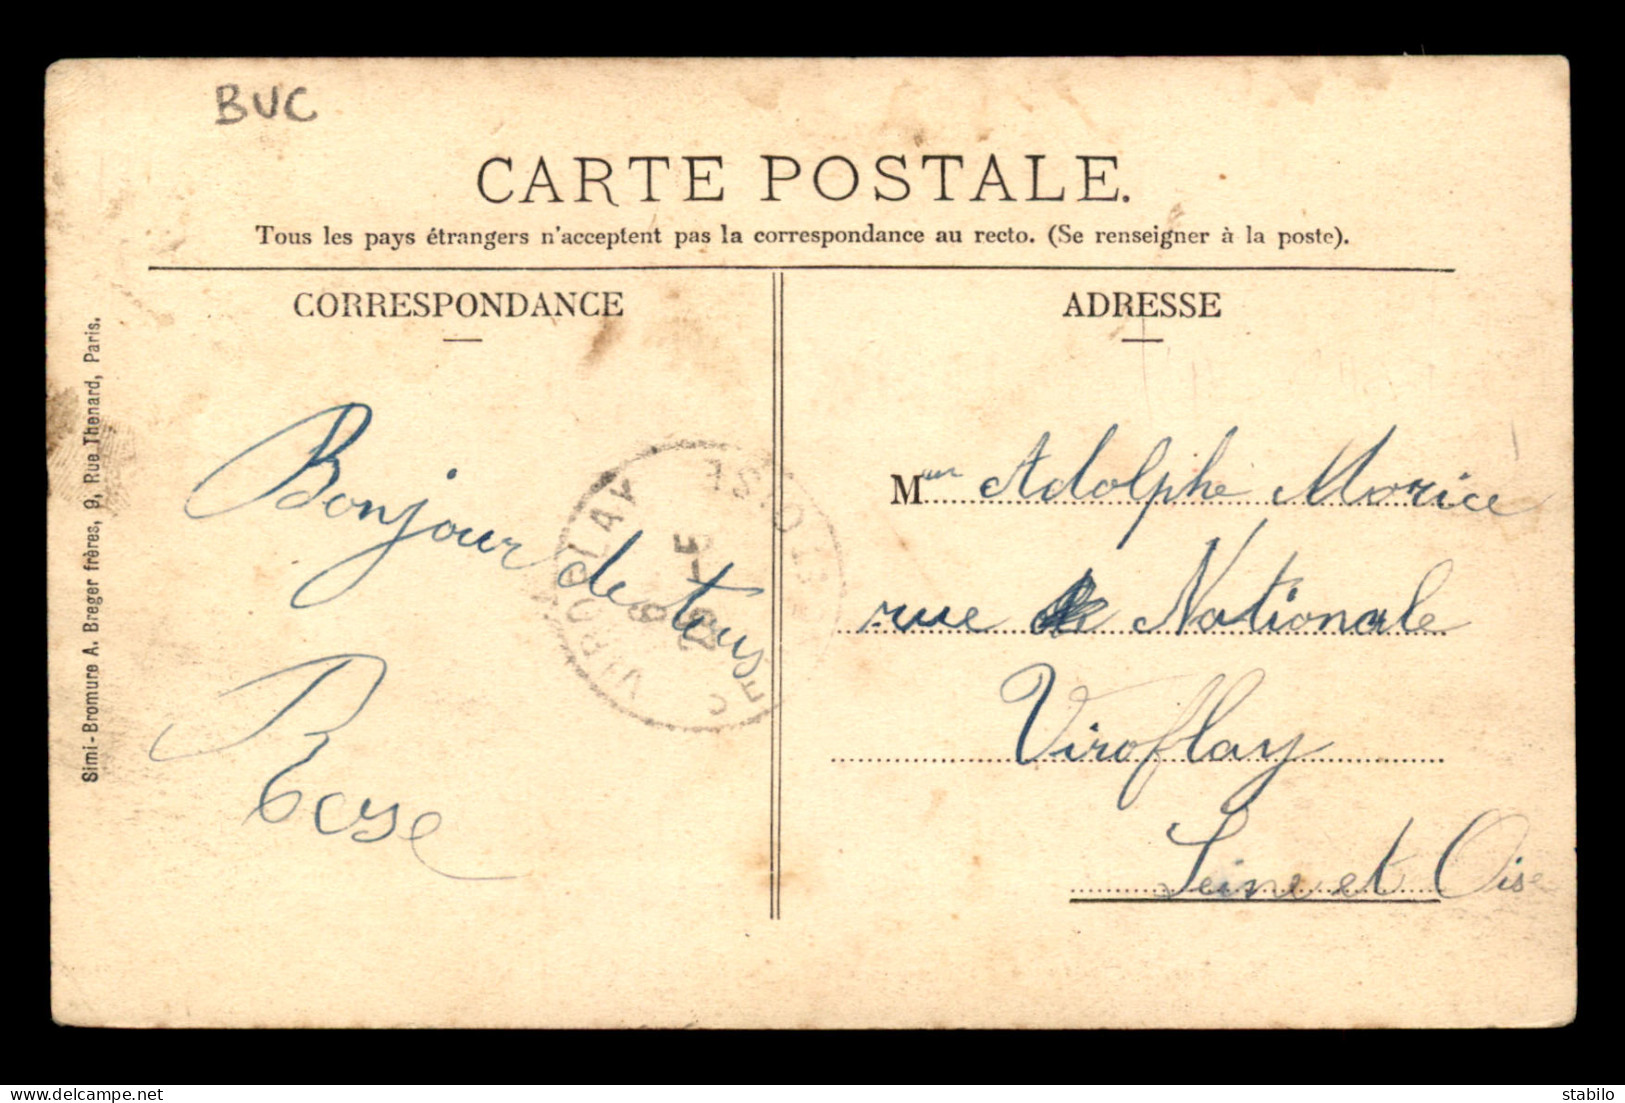 BUC
CARTE POSTALE.
Tous les pays étrangers n'acceptent pas la correspondance au recto. (Se renseigner à la poste).
CORRESPONDANCE
Bonjour de tous
Rose
ADRESSE
Meur Adolphe Morice
rue Nationale
Viroflay
Seine et Oise
Simi-Bromure A. Breger frères, 9, Rue Thenard, Paris.
VIROFLAY
ET-OISE
stabilo | delcampe.net